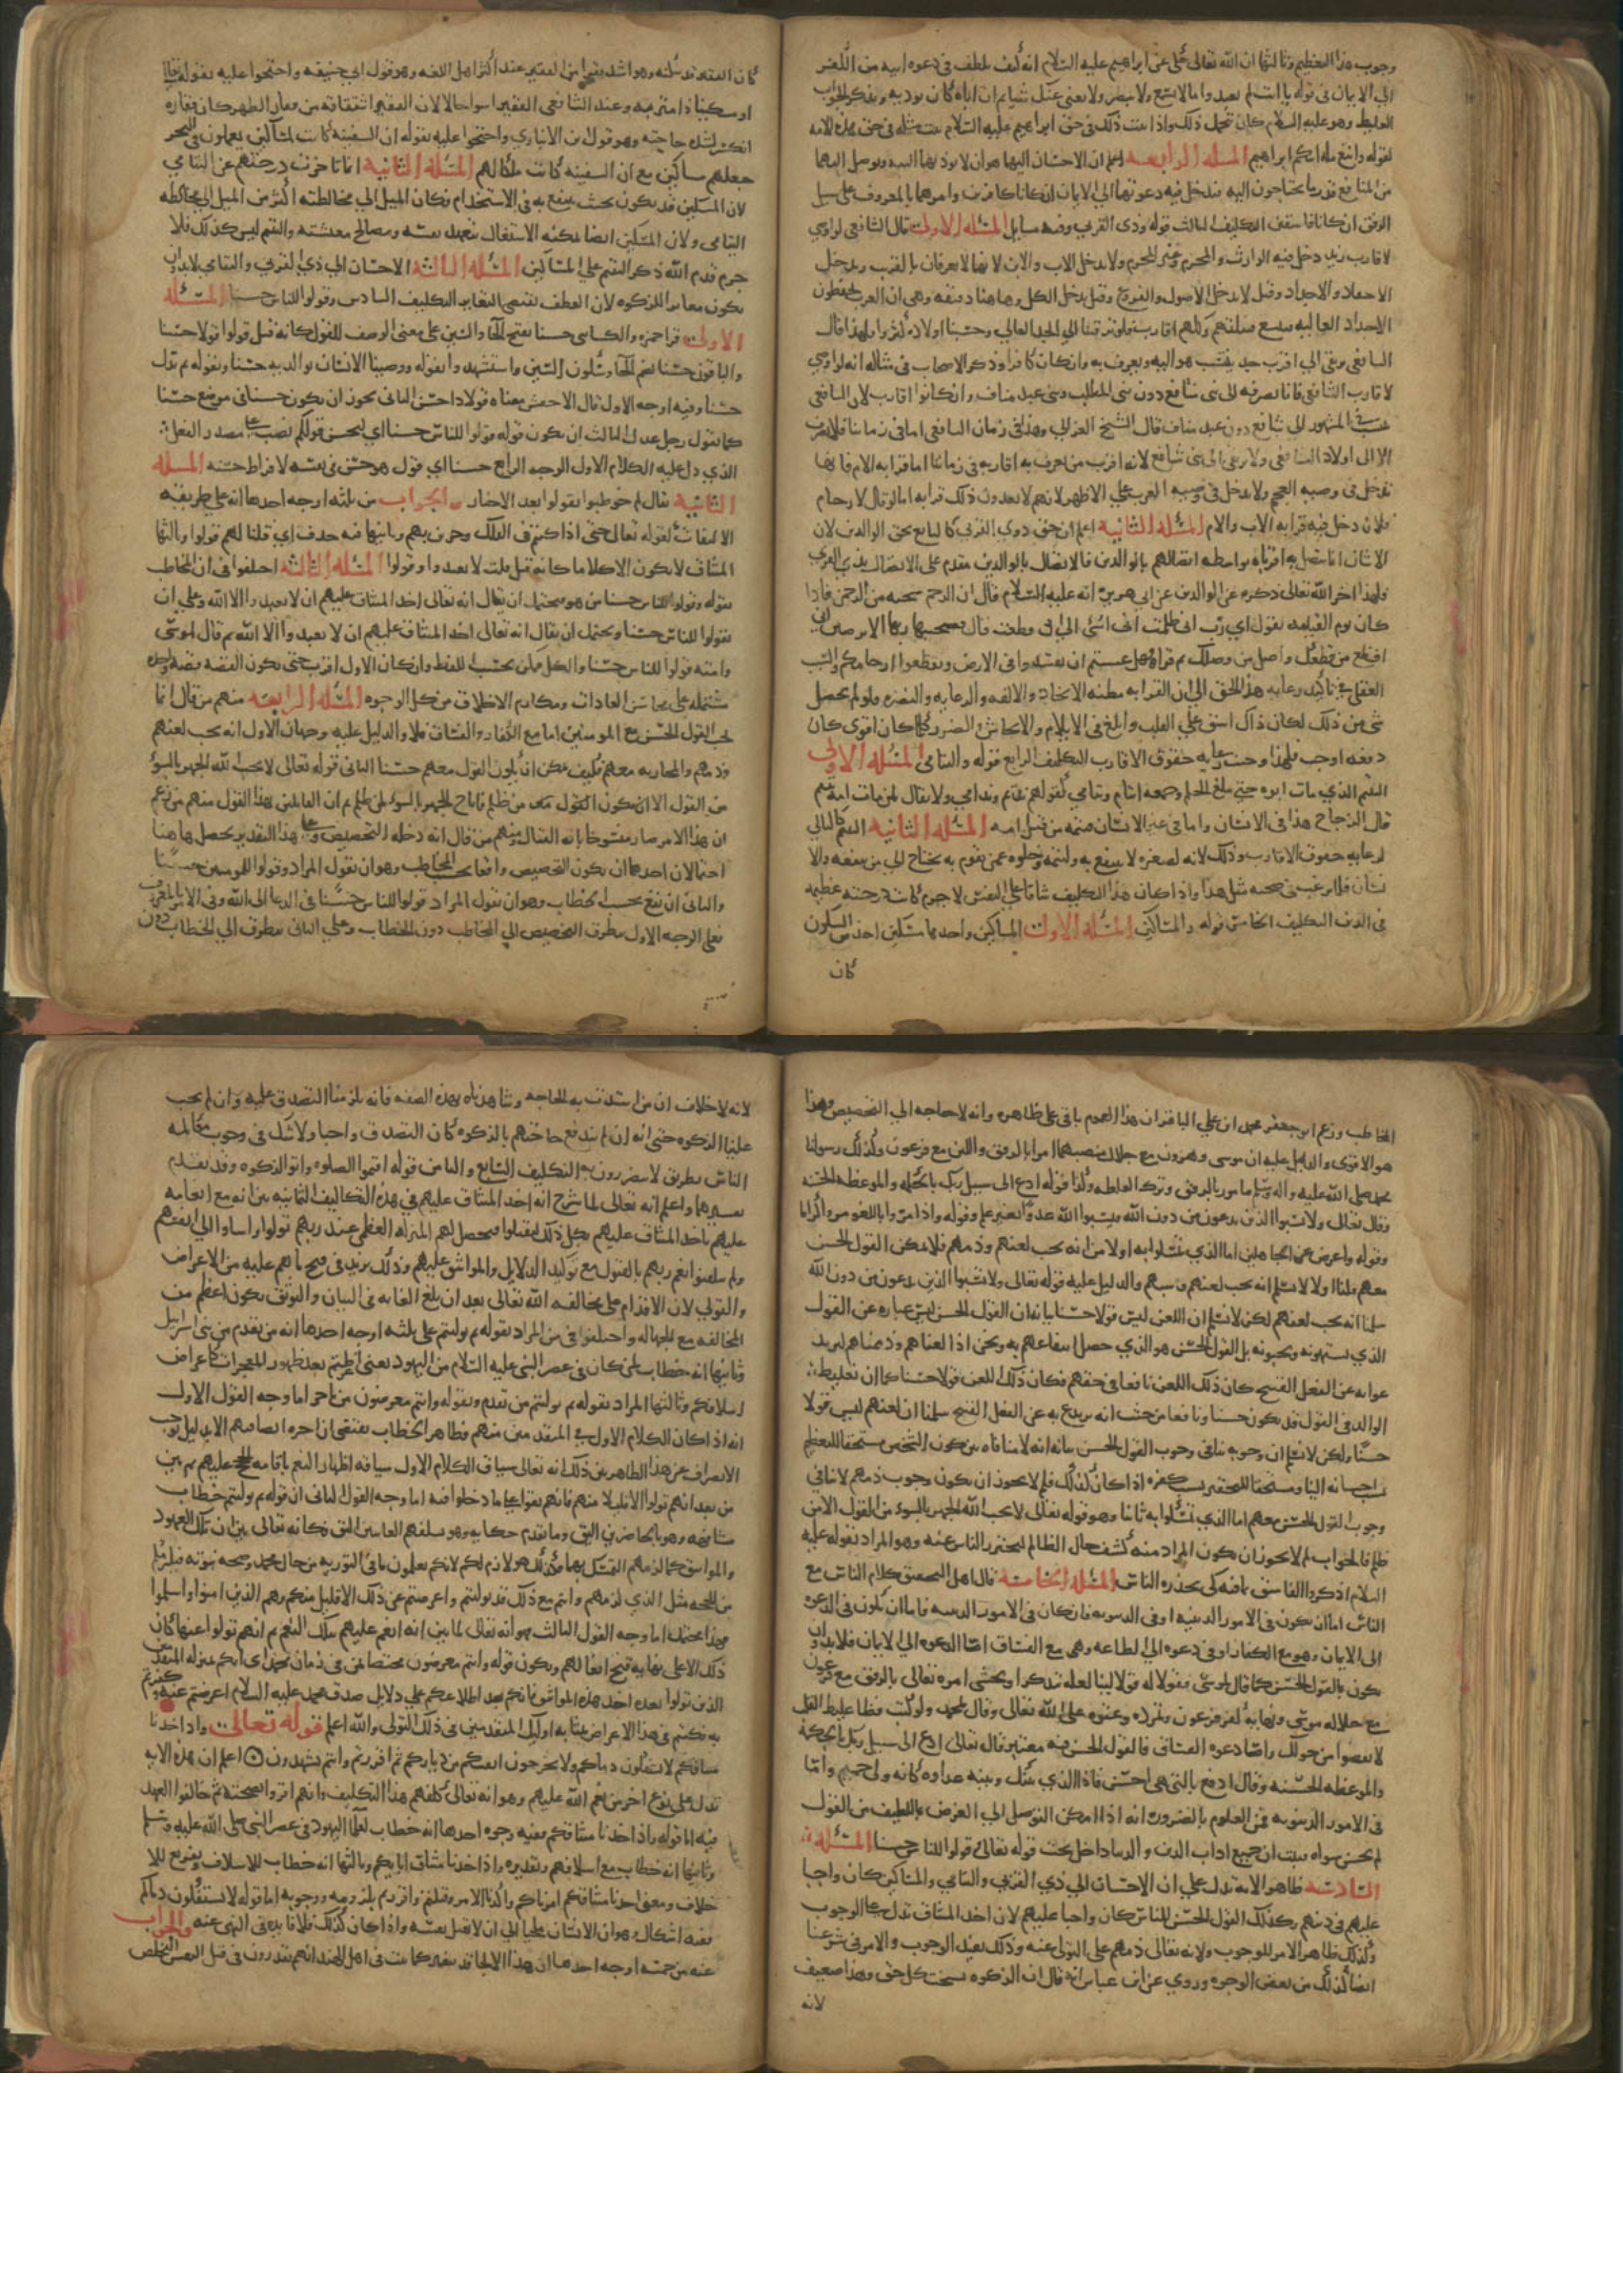 وجوب هذا التعظيم وثالثها ان الله تعالى حكى عن ابراهيم عليه السلام انه كيف تلطف في دعوه ابيه من الكفر
الي الايمان في قوله يا ابت لم تعبد ما لا يسمع ولا يبصر ولا يغني عنك شيئا ثم ان اباه كان يوذيه ويذكر الجواب
الغليظ وهو عليه السلام كان يتحمل ذلك واذا ثبت ذلك في حق ابراهيم عليه السلام ثبت مثله في حق هذه الامه
لقوله واتبع مله ابيكم ابراهيم المسئله الرابعه اعلم ان الاحسان اليهما هو ان لا يوذيهما البته ويوصل اليهما
من المنافع قدر ما يحتاجون اليه فيدخل فيه دعوتهما الي الايمان ان كانا كافرين وامرهما بالمعروف على سبيل
الرفق ان كانا فاسقين التكليف الثالث قوله وذي القربي وفيه مسايل المسئله الاولى قال الشافعي لو اوصي
لاقارب زيد دخل فيه الوارث والمحرم وغير المحرم ولا يدخل الاب والابن لانهما لا يعرفان بالقريب ويدخل
الاحفاد والاجداد وقيل لا يدخل الاصول والفروع وقيل يدخل الكل وهاهنا دقيقه وهي ان العرب يحفظون
الاجداد العاليه فيتسع نسلهم وكلهم اقارب فلو ترقينا الي الجد العالي وحسبنا اولاده كثروا ولهذا قال
الشافعي يرتقي الي اقرب جد ينتسب هو اليه ويعرف به وان كان كافرا وذكر الاصحاب في مثاله انه لو اوصي
لاقارب الشافعي فانا نصرفه الي بني شافع دون بني المطلب وبني عبد مناف وان كانوا اقارب لان الشافعي
ينسب في المشهور الي شافع دون عبد مناف قال الشيخ الغزالي وهذا في زمان الشافعي اما في زماننا فلا يصرف
الا الى اولاد الشافعي ولا يرتقي الى بني شافع لانه اقرب من يعرف به اقاربه في زماننا اما قرابه الام فانها
تدخل في وصيه العجم ولا تدخل في وصيه العرب علي الاظهر لانهم لا يعدون ذلك قرابه اما لو قال لارحام
فلان دخل فيه قرابه الاب والام المسئله الثانيه اعلم ان حق ذوي القربي كالتابع لحق الوالدين لان
الانسان انما يتصل به اقرباه بواسطه اتصالهم بالوالدين فالاتصال بالوالدين مقدم على الاتصال بذي القربي
ولهذا اخر الله تعالى ذكره عن الوالدين عن ابي هريره انه عليه السلام قال ان الرحم شجنه من الرحمن فاذا
كان يوم القيامه تقول اي رب اني ظلمت اني اسئ الي اني قطعت قال فيجيبها ربها الا ترضين اني
اقطع من قطعك واصل من وصلك ثم قرا فهل عسيتم ان تفسدوا في الارض وتقطعوا ارحامكم والسبب
العقلي في تاكيد رعايه هذا الحق الي ان القرابه مظنه الاتحاد والالفه والرعايه والنصره فلو لم يحصل
شي من ذلك لكان ذلك اشق علي القلب وابلغ في الايلام والايحاش والضرر وكلما كان اقوي كان
دفعه اوجب فلهذا وجبت رعايه حقوق الاقارب التكليف الرابع قوله واليتامي المسئله الاولي
اليتيم الذي مات ابوه حتي يبلغ الحلم وجمعه ايتام ويتامي كقولهم نديم وندامي ولا يقال لمن ماتت امه يتيم
قال الزجاج هذا في الانسان واما في غير الانسان فيتمه من قبل امه المسئله الثانيه اليتيم كالتالي
لرعايه حقوق الاقارب وذلك لانه لصغره لا ينتفع به وليتمه وخلوه عمن يقوم به يحتاج الي من ينفعه والا
نسان قلما يرغب في صحبه مثل هذا واذا كان هذا التكليف شاقا علي النفس لا جرم كانت درجته عظيمه
في الدين التكليف الخامس قوله والمساكين المسئله الاولى المساكين واحدها مسكين اخذ من السكون
كان
كان الفقر قد سكنه وهو اشد فقرا من الفقير عند اكثر اهل اللغه وهو قول ابي حنيفه واحتجوا عليه بقوله تعالى
او مسكينا ذا متربه وعند الشافعي الفقير اسوا حالا لان الفقير اشتقاقه من فقار الظهر كان فقاره
انكسر لشده حاجته وهو قول ابن الانباري واحتجوا عليه بقوله ان السفينه كانت لمساكين يعملون في البحر
جعلهم مساكين مع ان السفينه كانت ملكا لهم المسئله الثانيه انما تاخرت درجتهم عن اليتامي
لان المسكين قد يكون بحيث ينتفع به في الاستخدام فكان الميل الي مخالطته اكثر من الميل الي مخالطه
اليتامي ولان المسكين ايضا يمكنه الاشتغال بتعهد نفسه ومصالح معيشته واليتيم ليس كذلك فلا
جرم قدم الله ذكر اليتيم علي المساكين المسئله الثالثه الاحسان الي ذي القربي واليتامي لابد وان
يكون مغايرا للزكوه لان العطف يقتضي التغاير التكليف السادس وقولوا للناس حسنا المسئله
الاولى قرا حمزه والكسائي حسنا بفتح الحا والسين على معني الوصف للقول كانه قيل قولوا قولا حسنا
والباقون حسنا بضم الحا وسكون السين واستشهدوا بقوله ووصينا الانسان بوالديه حسنا وبقوله ثم بدل
حسنا وفيه اوجه الاول قال الاخفش معناه قولا ذا حسن الثاني يجوز ان يكون حسنا في موضع حسنا
كما تقول رجل عدل الثالث ان يكون قوله وقولوا للناس حسنا اي ليحسن قولكم نصب على مصدر الفعل
الذي دل عليه الكلام الاول الوجه الرابع حسنا اي قول هو حسن في نفسه لافراط حسنه المسئله
الثانيه يقال لم خوطبوا بقولوا بعد الاخبار والجواب من ثلثه اوجه احدها انه علي طريقه
الالتفات كقوله تعالى حتى اذا كنتم في الفلك وجرين بهم وثانيها فيه حذف اي قلنا لهم قولوا وثالثها
الميثاق لا يكون الا كلاما كانه قيل قلت لا تعبدوا وقولوا المسئله الثالثه اختلفوا في ان المخاطب
بقوله وقولوا للناس حسنا من هو فيحتمل ان يقال انه تعالى اخذ الميثاق عليهم ان لا يعبدوا الا الله وعلي ان
يقولوا للناس حسنا ويحتمل ان يقال انه تعالى اخذ الميثاق عليهم ان لا يعبدوا الا الله ثم قال لموسى
وامته قولوا للناس حسنا والكل ممكن بحسب اللفظ وان كان الاول اقرب حتى يكون القصه قصه واحده
مشتمله على محاسن العادات ومكارم الاخلاق من كل الوجوه المسئله الرابعه منهم من قال انما
يجب القول الحسن مع المومنين اما مع الكفار والفساق فلا والدليل عليه وجهان الاول انه يجب لعنهم
وذمهم والمحاربه معهم فكيف يمكن ان يكون القول معهم حسنا الثاني قوله تعالى لا يحب الله الجهر بالسوء
من القول الا من ظلم فاباح الجهر بالسوء لمن ظلم ثم ان القائلين بهذا القول منهم من زعم
ان هذا الامر صار منسوخا بايه القتال ومنهم من قال انه دخله التخصيص وعلى هذا التقدير يحصل هاهنا
احتمالان احدهما ان يكون التخصيص واقعا بحسب المخاطب وهو ان يقول المراد وقولوا للمومنين حسنا
والثاني ان يقع بحسب الخطاب وهو ان يقول المراد قولوا للناس حسنا في الدعا الى الله وفي الامر بالمعروف
فعلى الوجه الاول يتطرق التخصيص الي المخاطب دون الخطاب وعلي الثاني يتطرق الي الخطاب دون
المخاطب وزعم ابو جعفر محمد ابن علي الباقر ان هذا العموم باقي على ظاهره وانه لا حاجه الي التخصيص وهذا
هو الاقوى والدليل عليه ان موسى وهرون مع جلال منصبهما امرا بالرفق واللين مع فرعون وكذلك رسولنا
محمد صلى الله عليه واله وسلم مامور بالرفق وترك الغلظه وكذا قوله ادع الى سبيل ربك بالحكمه والموعظه الحسنه
وقال تعالى ولا تسبوا الذين يدعون من دون الله فيسبوا الله عدوا بغير علم وقوله واذا مروا باللغو مروا كراما
وقوله واعرض عن الجاهلين اما الذي تمسكوا به اولا من انه يجب لعنهم وذمهم فلا يمكن القول الحسن
معهم قلنا اولا لا نسلم انه يجب لعنهم وسبهم والدليل عليه قوله تعالى ولا تسبوا الذين يدعون من دون الله
سلمنا انه يجب لعنهم لكن لا نسلم ان اللعن ليس قولا حسنا بيانه ان القول الحسن ليس عباره عن القول
الذي يشتهونه ويحبونه بل القول الحسن هو الذي حصل انتفاعهم به ونحن اذا لعناهم وذممناهم ليرتد
عوا به عن الفعل القبيح كان ذلك اللعن نافعا في حقهم فكان ذلك اللعن قولا حسنا كما ان تغليظ
الوالد في القول قد يكون حسنا ونافعا من حيث انه يرتدع به عن الفعل القبيح سلمنا ان لعنهم ليس قولا
حسنا ولكن لا نسلم ان وجوبه ينافي وجوب القول الحسن بيانه انه لا منافاه بين كون الشخص مستحقا للتعظيم
بسبب احسانه الينا ومستحقا للتحقير بسبب كفره اذا كان كذلك فلم لا يجوز ان يكون وجوب ذمهم لا ينافي
وجوب القول الحسن معهم اما الذي تمسكوا به ثانيا وهو قوله تعالى لا يحب الله الجهر بالسوء من القول الا من
ظلم فالجواب لم لا يجوز ان يكون المراد منه كشف حال الظالم ليحترز الناس عنه وهو المراد بقوله عليه
السلام اذكروا الفاسق بما فيه كي يحذره الناس المسئله الخامسه قال اهل التحقيق كلام الناس مع
الناس اما ان يكون في الامور الدينيه او في الدنيويه فان كان في الامور الدينيه فاما ان يكون في الدعوه
الى الايمان وهو مع الكفار او في الدعوه الي الطاعه وهي مع الفساق اما الدعوه الي الايمان فلابد وان
يكون بالقول الحسن كما قال لموسى فقولا له قولا لينا لعله يتذكر او يخشى امره تعالى بالرفق مع فرعون
مع جلاله موسى ونهايه كفر فرعون وتمرده وعتوه على الله تعالى وقال لمحمد ولو كنت فظا غليظ القلب
لانفضوا من حولك واما دعوه الفساق فالقول الحسن فيه معتبر قال تعالى ادع الى سبيل ربك بالحكمه
والموعظه الحسنه وقال ادفع بالتي هي احسن فاذا الذي بينك وبينه عداوه كانه ولي حميم واما
في الامور الدنيويه فمن المعلوم بالضروره انه اذا امكن التوصل الي الغرض باللطيف من القول
لم يحسن سواه فثبت ان جميع اداب الدين والدنيا داخل تحت قوله تعالى قولوا للناس حسنا المسئله
السادسه ظاهر الايه يدل علي ان الاحسان الي ذي القربي واليتامي والمساكين كان واجبا
عليهم في دينهم وكذلك القول الحسن للناس كان واجبا عليهم لان اخذ الميثاق يدل على الوجوب
وكذلك ظاهر الامر للوجوب ولانه تعالى ذمهم على التولي عنه وذلك يفيد الوجوب والامر في شرعنا
ايضا كذلك من بعض الوجوه وروي عن ابن عباس انه قال ان الزكوه نسخت كل حق وهذا ضعيف
لانه
لانه لا خلاف ان من اشتدت به الحاجه وشاهدناه بهذه الصفه فانه يلزمنا التصدق عليه وان لم يجب
علينا الزكوه حتى انه ان لم تندفع حاجتهم بالزكوه كان التصدق واجبا ولا شك في وجوب مكالمه
الناس بطريق لا يتضررون به التكليف السابع والثامن قوله اقيموا الصلوه واتوا الزكوه وقد تقدم
تفسيرهما واعلم انه تعالى لما شرح انه اخذ الميثاق عليهم في هذه التكاليف الثمانيه بين انه مع انعامه
عليهم باخذ الميثاق عليهم بكل ذلك ليقبلوا فيحصل لهم المنزله العظمى عند ربهم تولوا واساوا الي انفسهم
ولم يتلقوا نعم ربهم بالقبول مع توكيد الدلايل والمواثيق عليهم وذلك يزيد في قبح ما هم عليه من الاعراض
والتولي لان الاقدام على مخالفه الله تعالى بعد ان بلغ الغايه في البيان والتوثق يكون اعظم من
المخالفه مع الجهاله واختلفوا في من المراد بقوله ثم توليتم على ثلثه اوجه احدها انه من تقدم من بني اسرايل
وثانيها انه خطاب لمن كان في عصر النبي عليه السلام من اليهود يعني اعرضتم بعد ظهور المعجزات كاعراض
اسلافكم وثالثها المراد بقوله ثم توليتم من تقدم وبقوله وانتم معرضون من تاخر اما وجه القول الاول
انه اذا كان الكلام الاول في المتقدمين منهم فظاهر الخطاب يقتضي ان اخره ايضا فيهم الا بدليل يوجب
الانصراف عن هذا الظاهر يبين ذلك انه تعالى ساق الكلام الاول سياقه اظهار النعم باقامه الحجج عليهم ثم بين
من بعد انهم تولوا الا قليلا منهم فانهم بقوا علي ما دخلوا فيه اما وجه القول الثاني ان قوله ثم توليتم خطاب
مشافهه وهو بالحاضرين اليق وما تقدم حكايه وهو بسلفهم الغابين اليق فكانه تعالى بين ان تلك العهود
والمواثيق كما لزمهم التمسك بها فذلك هو لازم لكم لانكم تعلمون ما في التوريه من حال محمد وصحه نبوته فيلزمكم
من الحجه مثل الذي لزمهم وانتم مع ذلك قد توليتم واعرضتم عن ذلك الا قليل منكم وهم الذين امنوا واسلموا
فهذا محتمل اما وجه القول الثالث هو انه تعالى لما بين انه انعم عليهم بتلك النعم ثم انهم تولوا عنها كان
ذلك دالا على نهايه قبح افعالهم ويكون قوله وانتم معرضون مختصا بمن في زمان محمد اي انكم بمنزله المتقدمين
الذين تولوا بعد اخذ هذه المواثيق فانكم بعد اطلاعكم علي دلايل صدق محمد عليه السلام اعرضتم عنه وكفرتم
به فكنتم في هذا الاعراض بمثابه اوليك المتقدمين في ذلك التولى والله اعلم قوله تعالى واذ اخذنا
ميثاقكم لا تسفكون دماكم ولا تخرجون انفسكم من دياركم ثم اقررتم وانتم تشهدون اعلم ان هذه الايه
تدل على نوع اخر من نعم الله عليهم وهو انه تعالى كلفهم هذا التكليف وانهم اقروا بصحته ثم خالفوا العهد
فيه اما قوله واذ اخذنا ميثاقكم ففيه وجوه احدها انه خطاب لعلما اليهود في عصر النبي صلى الله عليه وسلم
وثانيها انه خطاب مع اسلافهم وتقديره واذ اخذنا ميثاق ابايكم وثالثها انه خطاب للاسلاف وتقريع للا
خلاف ومعنى اخذنا ميثاقكم امرناكم واكدنا الامر وقبلتم واقررتم بلزومه ووجوبه اما قوله لا تسفكون دماكم
ففيه اشكال وهو ان الانسان ملجا الي ان لا يقتل نفسه واذا كان كذلك فلا فايده في النهي عنه والجواب
عنه من خمسه اوجه احدها ان هذا الالجا قد يتغير كما ثبت في اهل الهند انهم يقدرون في قتل النفس التخلص